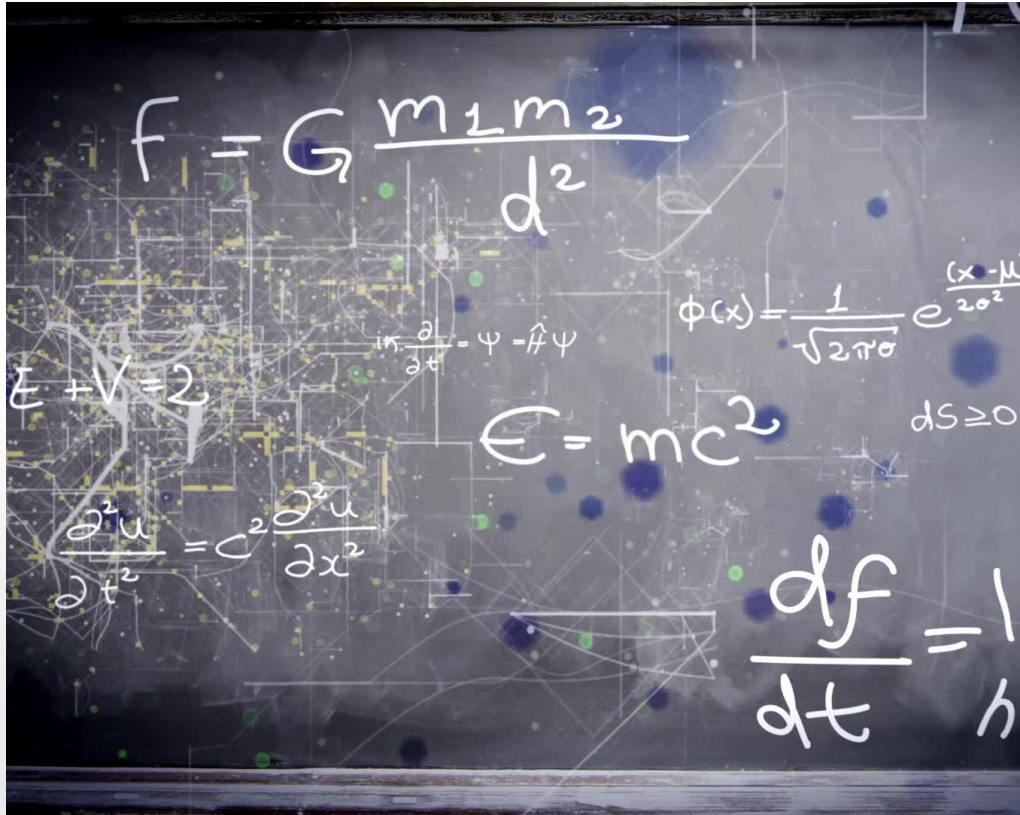 F = G m1 m2 / d²
ϕ(x) = 1 / √2πσ e (x-μ / 2σ²
iħ ∂ / ∂t = Ψ = Ĥ Ψ
E + V = 2
E = mc²
dS ≥ 0
∂²u / ∂t² = c² ∂²u / ∂x²
df / dt = 1 / h